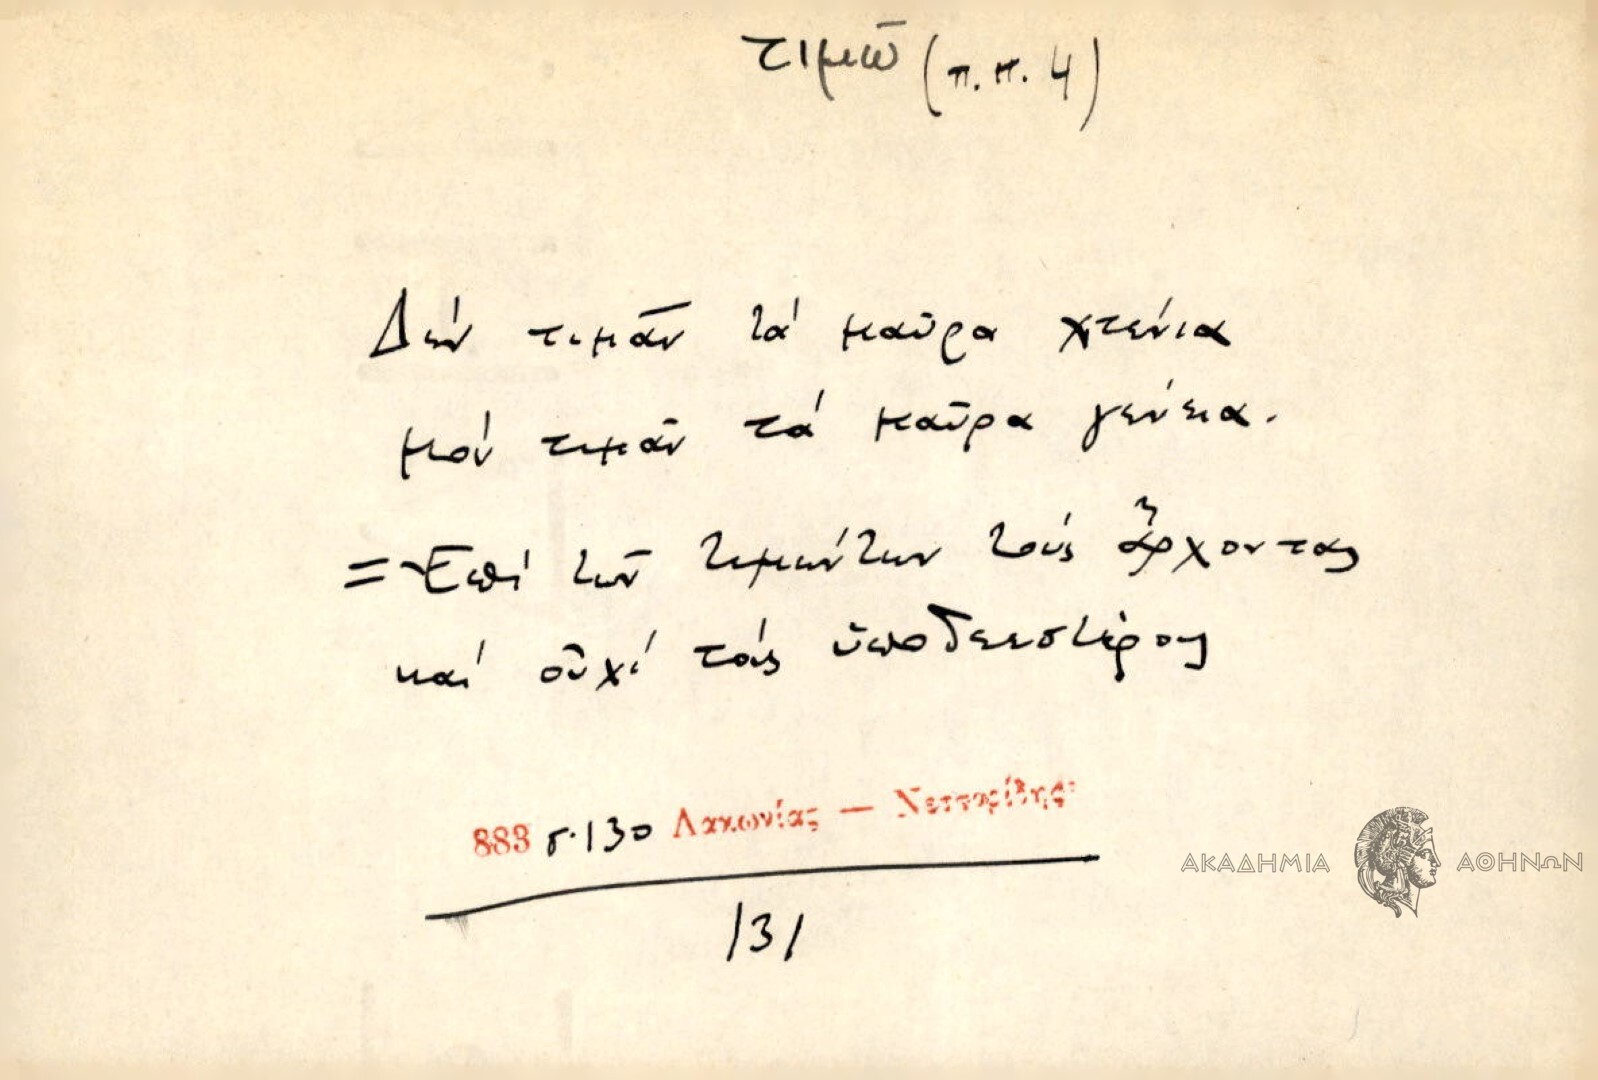 τιμῶ (π.π. 4)
Δέν τιμᾶν τά μαῦρα χτένια
μόν τιμᾶν τά μαῦρα γένεια.
= Ἐπί τῶν τιμώντων τούς ἄρχοντας
καί οὐχί τούς ὑποδεεστέρους
883 σ. 130 Λακωνίας — Νεστορίδης
131
ΑΚΑΔΗΜΙΑ ΑΘΗΝΩΝ